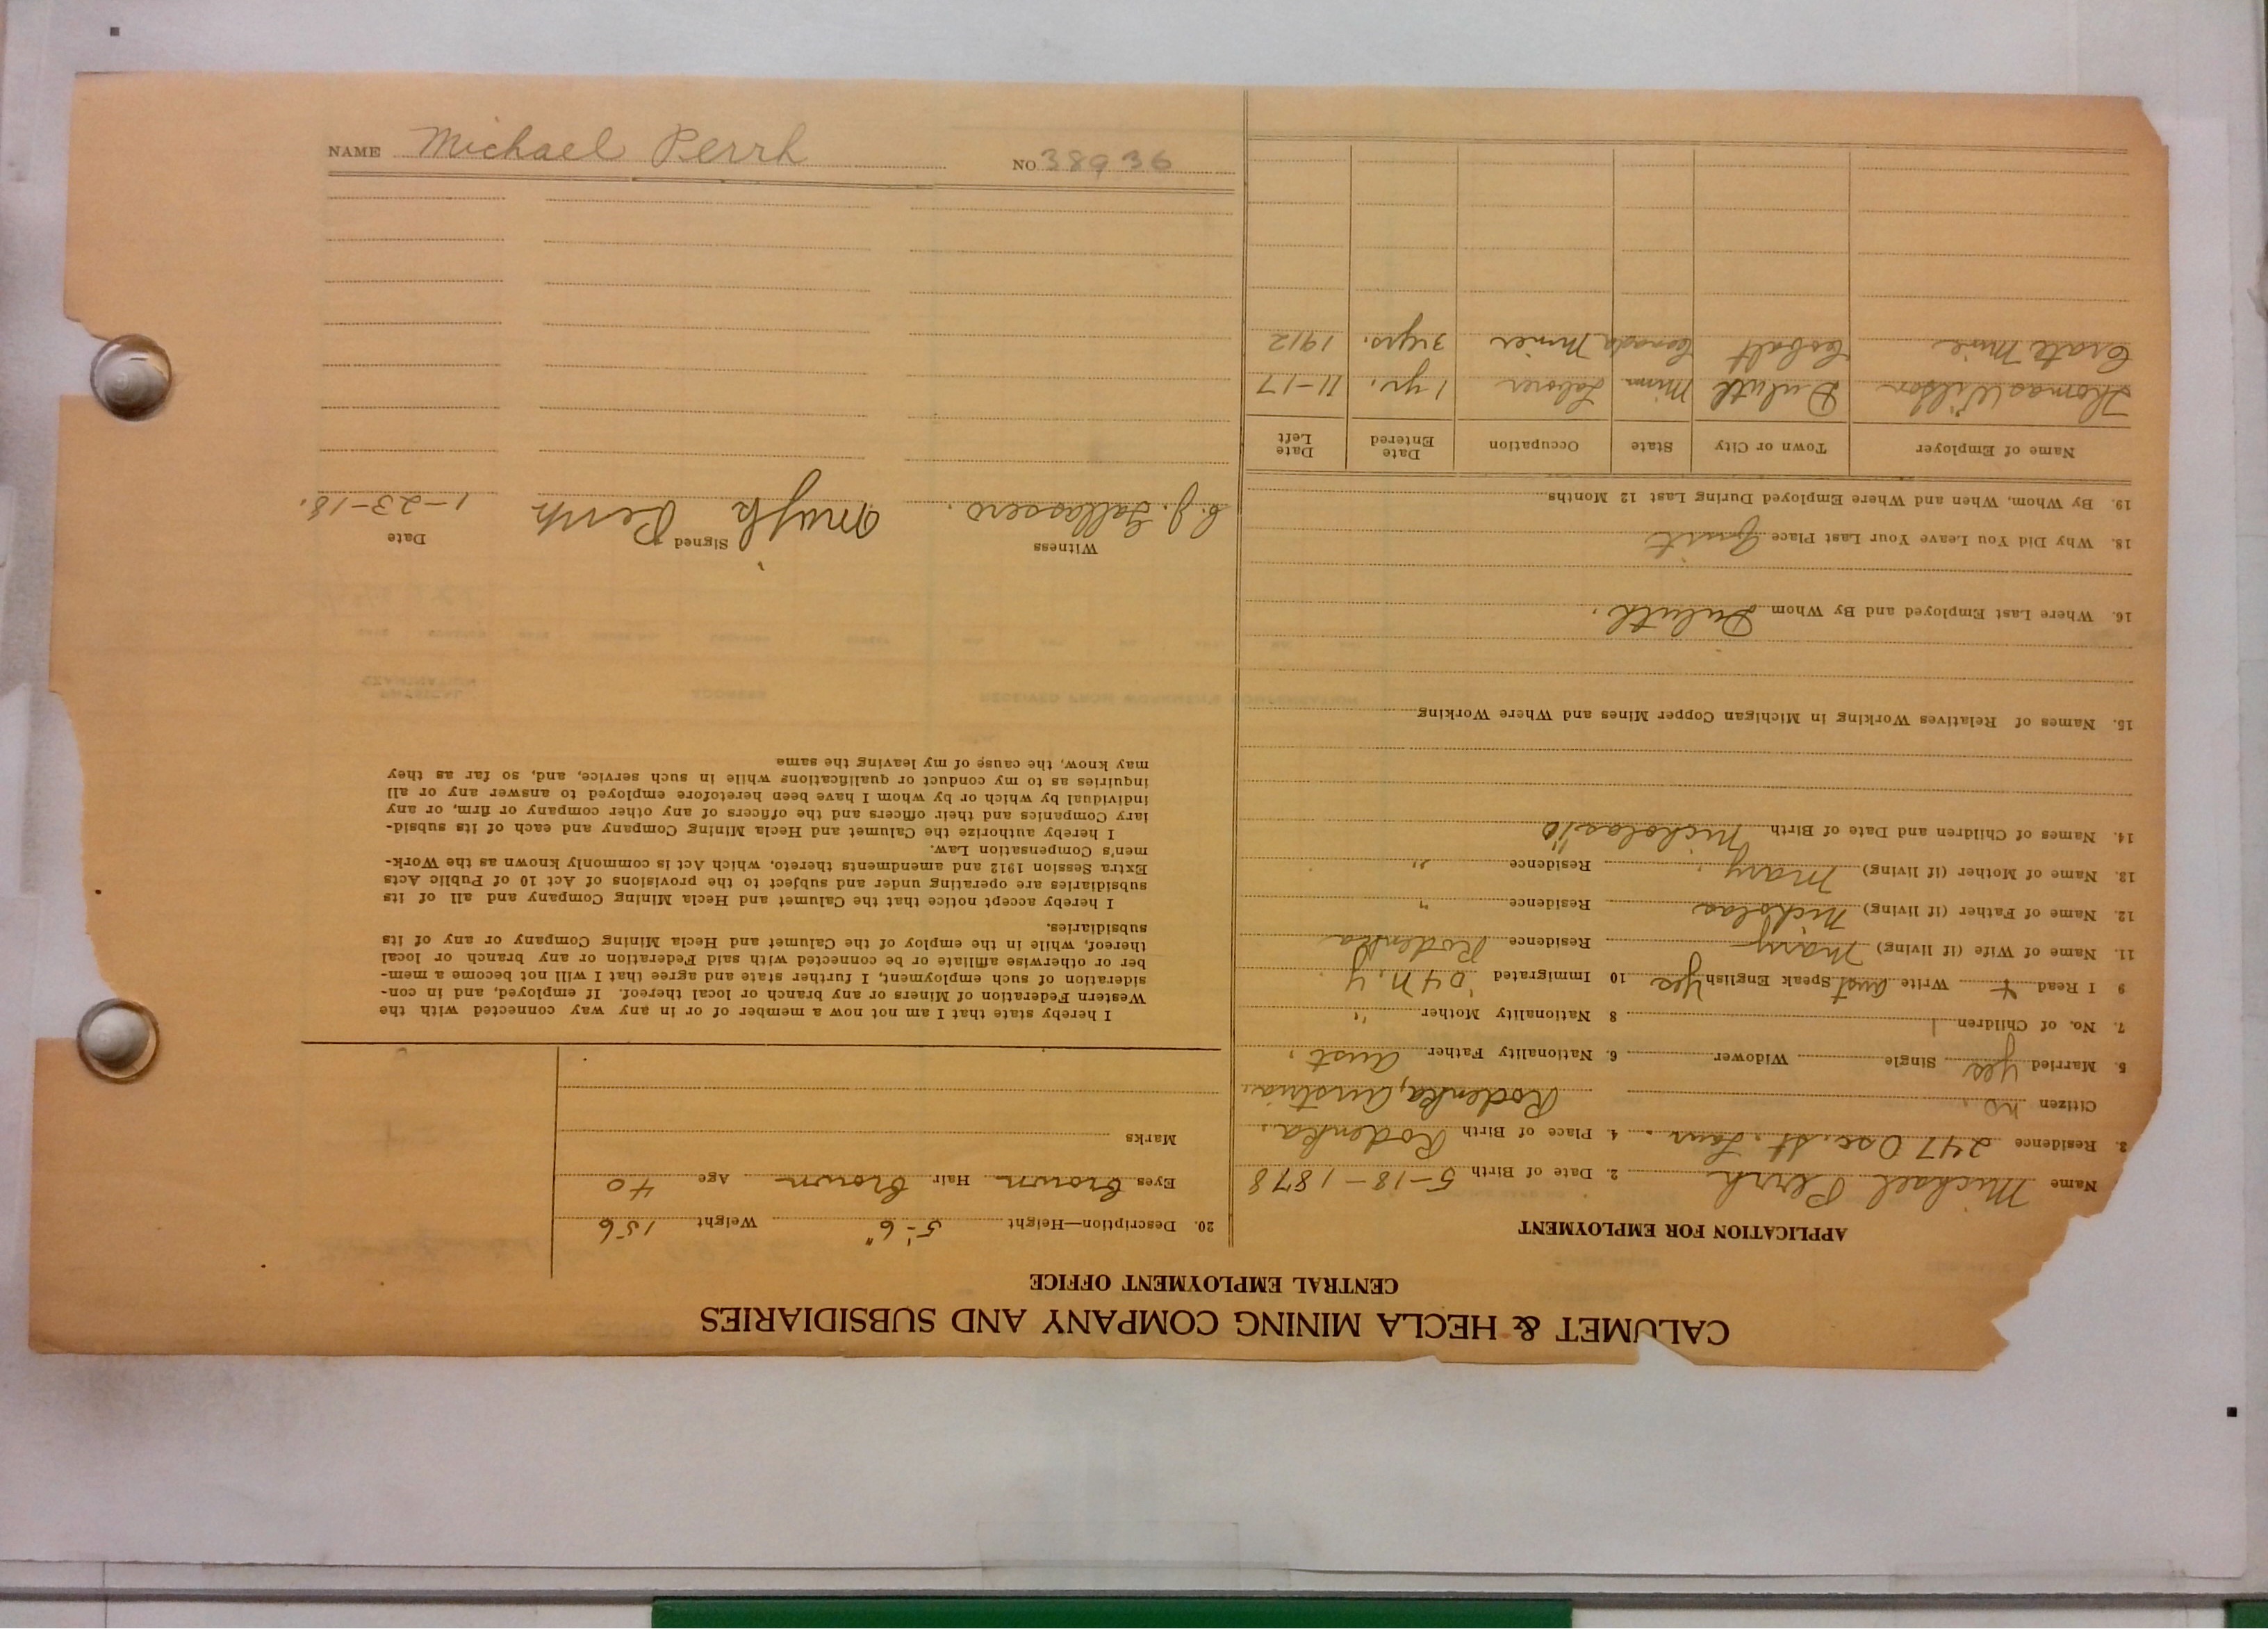 NAME Michael Perrh NO 38936
CALUMET & HECLA MINING COMPANY AND SUBSIDIARIES
CENTRAL EMPLOYMENT OFFICE
APPLICATION FOR EMPLOYMENT
Name Michael Perrh 2. Date of Birth 5-18-1878
3. Residence 247 Osc. St. Laur. 4. Place of Birth Rodenka.
Citizen no. Rodenka, Austria.
5. Married yes Single Widower 6. Nationality Father Aust.
7. No. of Children 1 8 Nationality Mother "
9 I Read + Write Aust Speak English yes 10 Immigrated '04 N.Y.
11. Name of Wife (if living) Mary Residence Rodenka
12. Name of Father (if living) Nicholas Residence "
13. Name of Mother (if living) Mary. Residence "
14. Names of Children and Date of Birth Nicholas
15. Names of Relatives Working in Michigan Copper Mines and Where Working
16. Where Last Employed and By Whom Duluth.
18. Why Did You Leave Your Last Place Quit
19. By Whom, When and Where Employed During Last 12 Months
Name of Employer Town or City State Occupation Date Entered Date Left
Thomas Wilson Duluth Minn Laborer 1 yr. 11-17
Mine Cobalt Canada Miner 3 yrs. 1912
20. Description—Height 5'-6" Weight 156
Eyes Brown Hair Brown Age 40
Marks
I hereby state that I am not now a member of or in any way connected with the
Western Federation of Miners or any branch or local thereof. If employed, and in con-
sideration of such employment, I further state and agree that I will not become a mem-
ber or otherwise affiliate or be connected with said Federation or any branch or local
thereof, while in the employ of the Calumet and Hecla Mining Company or any of its
subsidiaries.
I hereby accept notice that the Calumet and Hecla Mining Company and all of its
subsidiaries are operating under and subject to the provisions of Act 10 of Public Acts
Extra Session 1912 and amendments thereto, which Act is commonly known as the Work-
men's Compensation Law.
I hereby authorize the Calumet and Hecla Mining Company and each of its subsid-
iary Companies and their officers and the officers of any other company or firm, or any
individual by which or by whom I have been heretofore employed to answer any or all
inquiries as to my conduct or qualifications while in such service, and, so far as they
may know, the cause of my leaving the same
Witness Signed Date
Perrh 1-23-18.